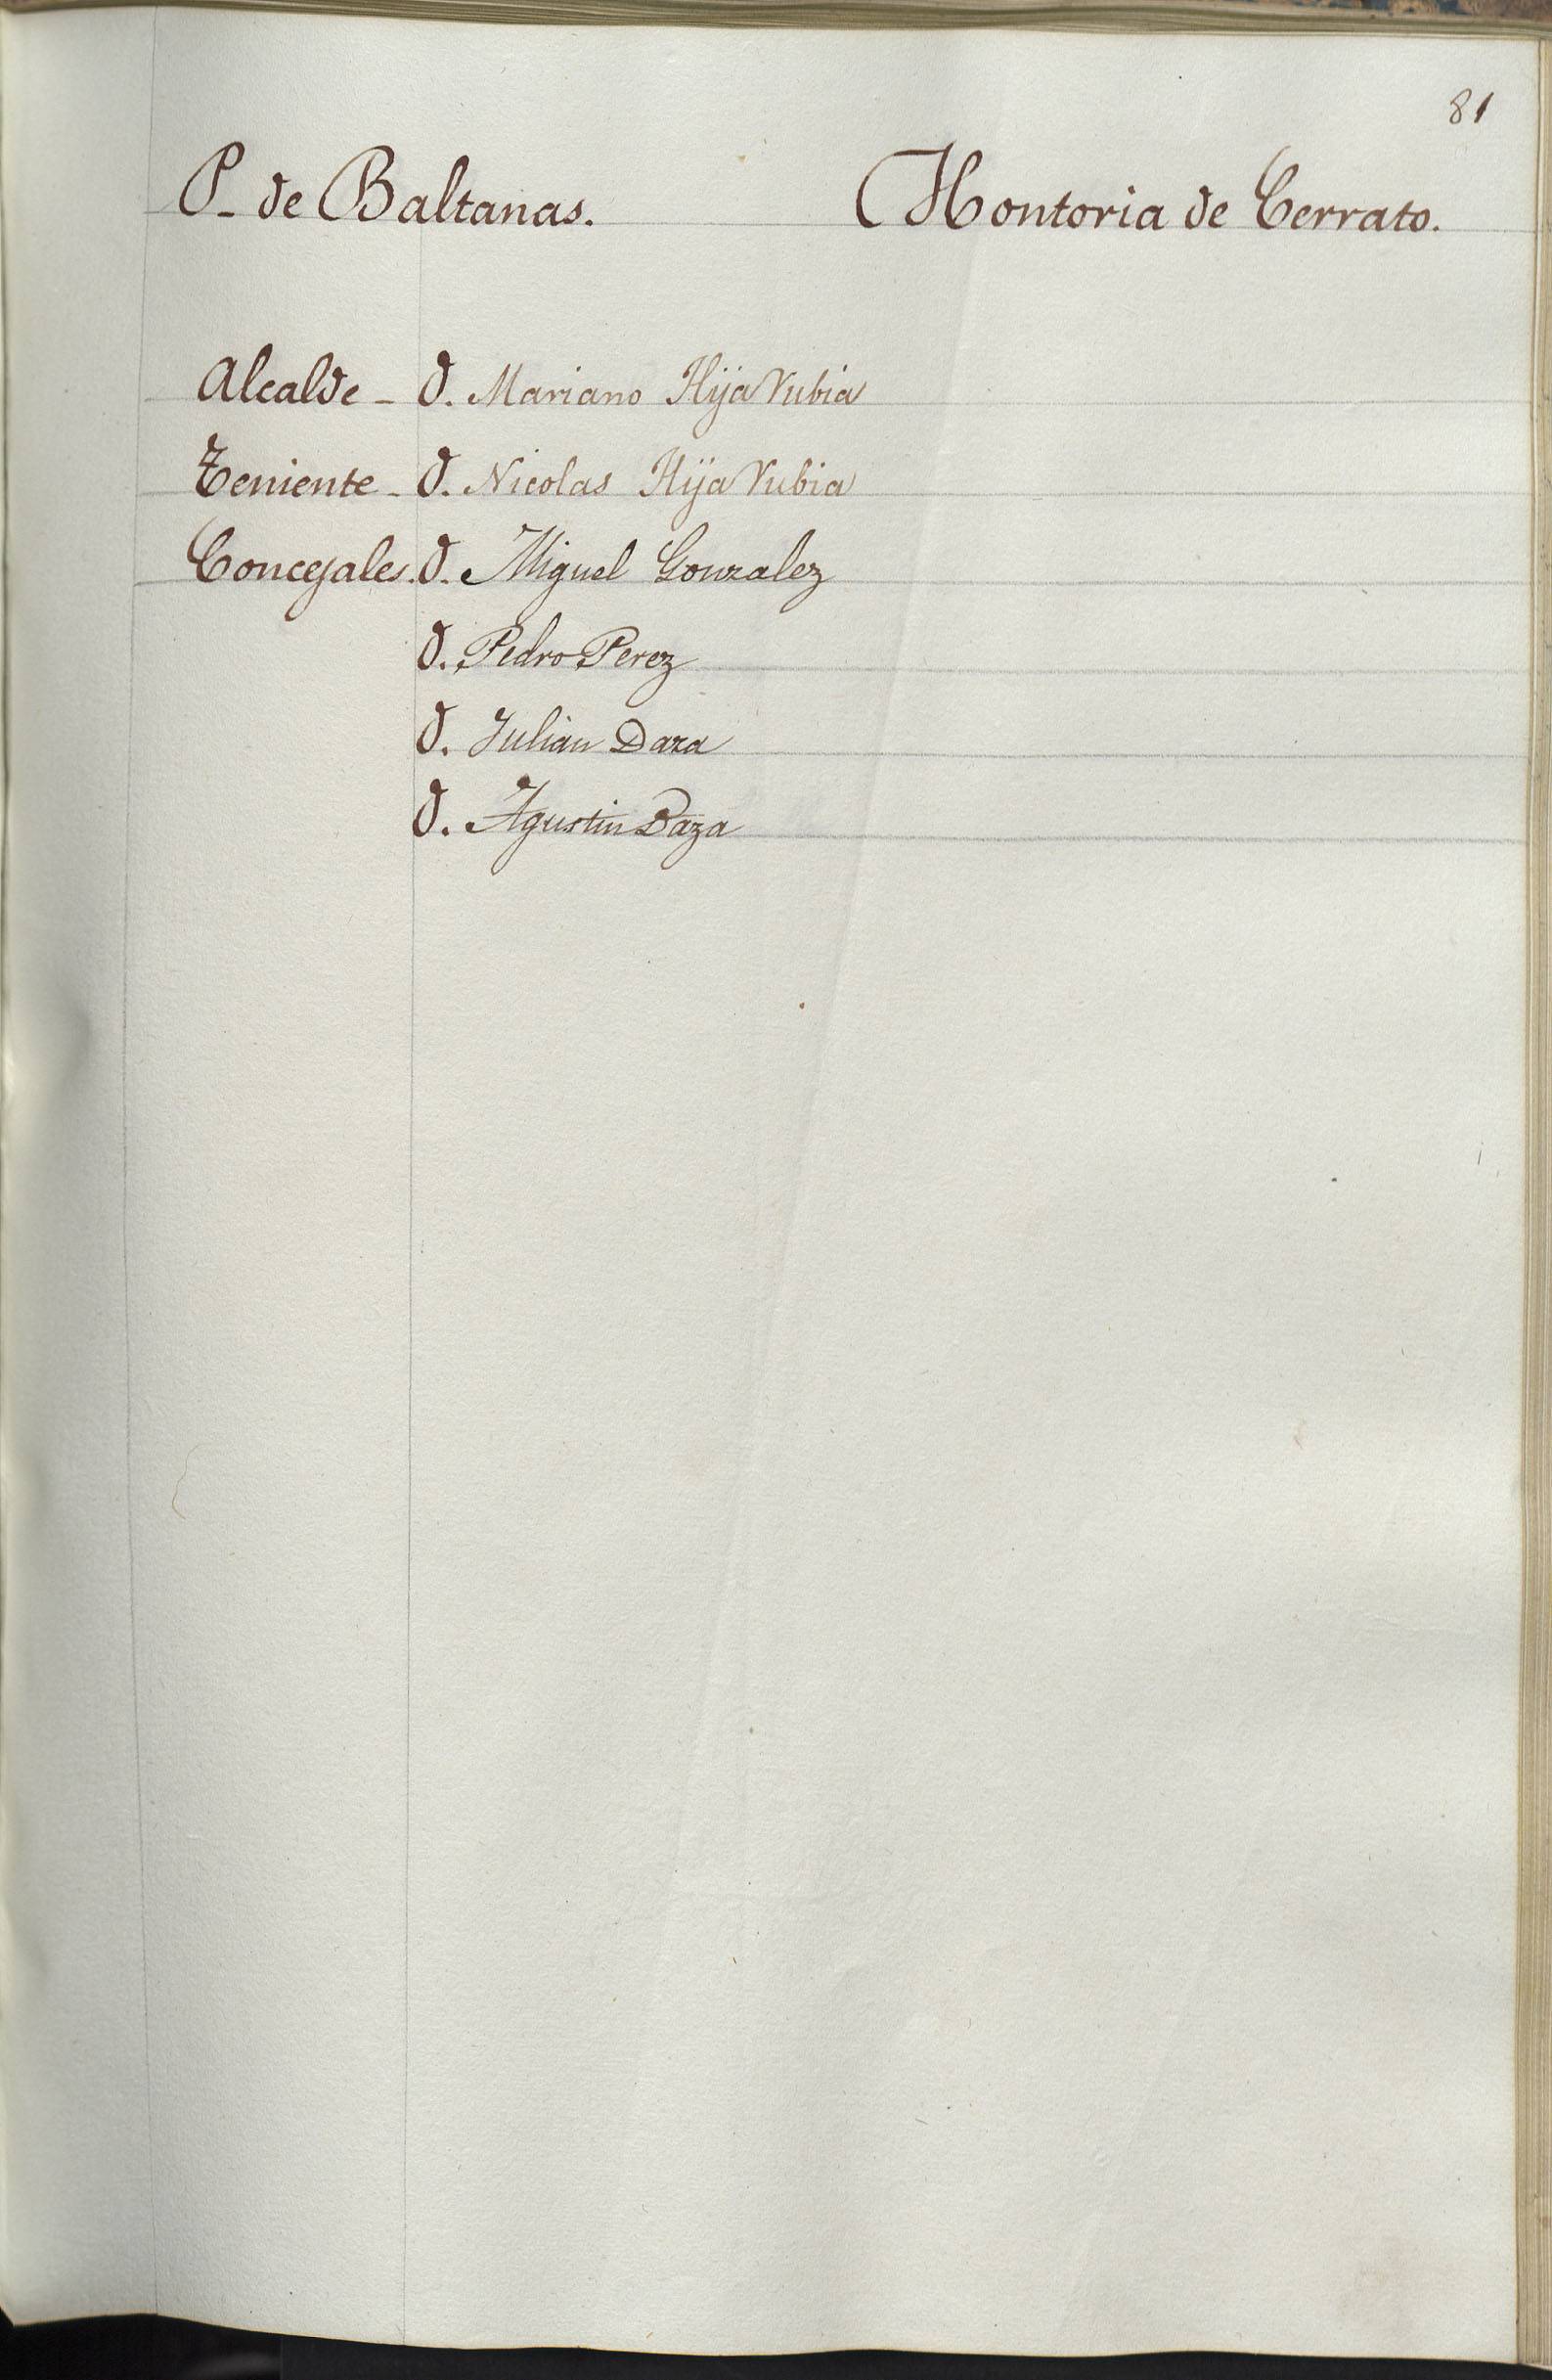 81
P- de Baltanas. Hontoria de Cerrato.
Alcalde - D. Mariano Hija Rubia
Teniente - D. Nicolas Hija Rubia
Concejales. D. Miguel Gonzalez
D. Pedro Perez
D. Julian Daza
D. Agustin Daza